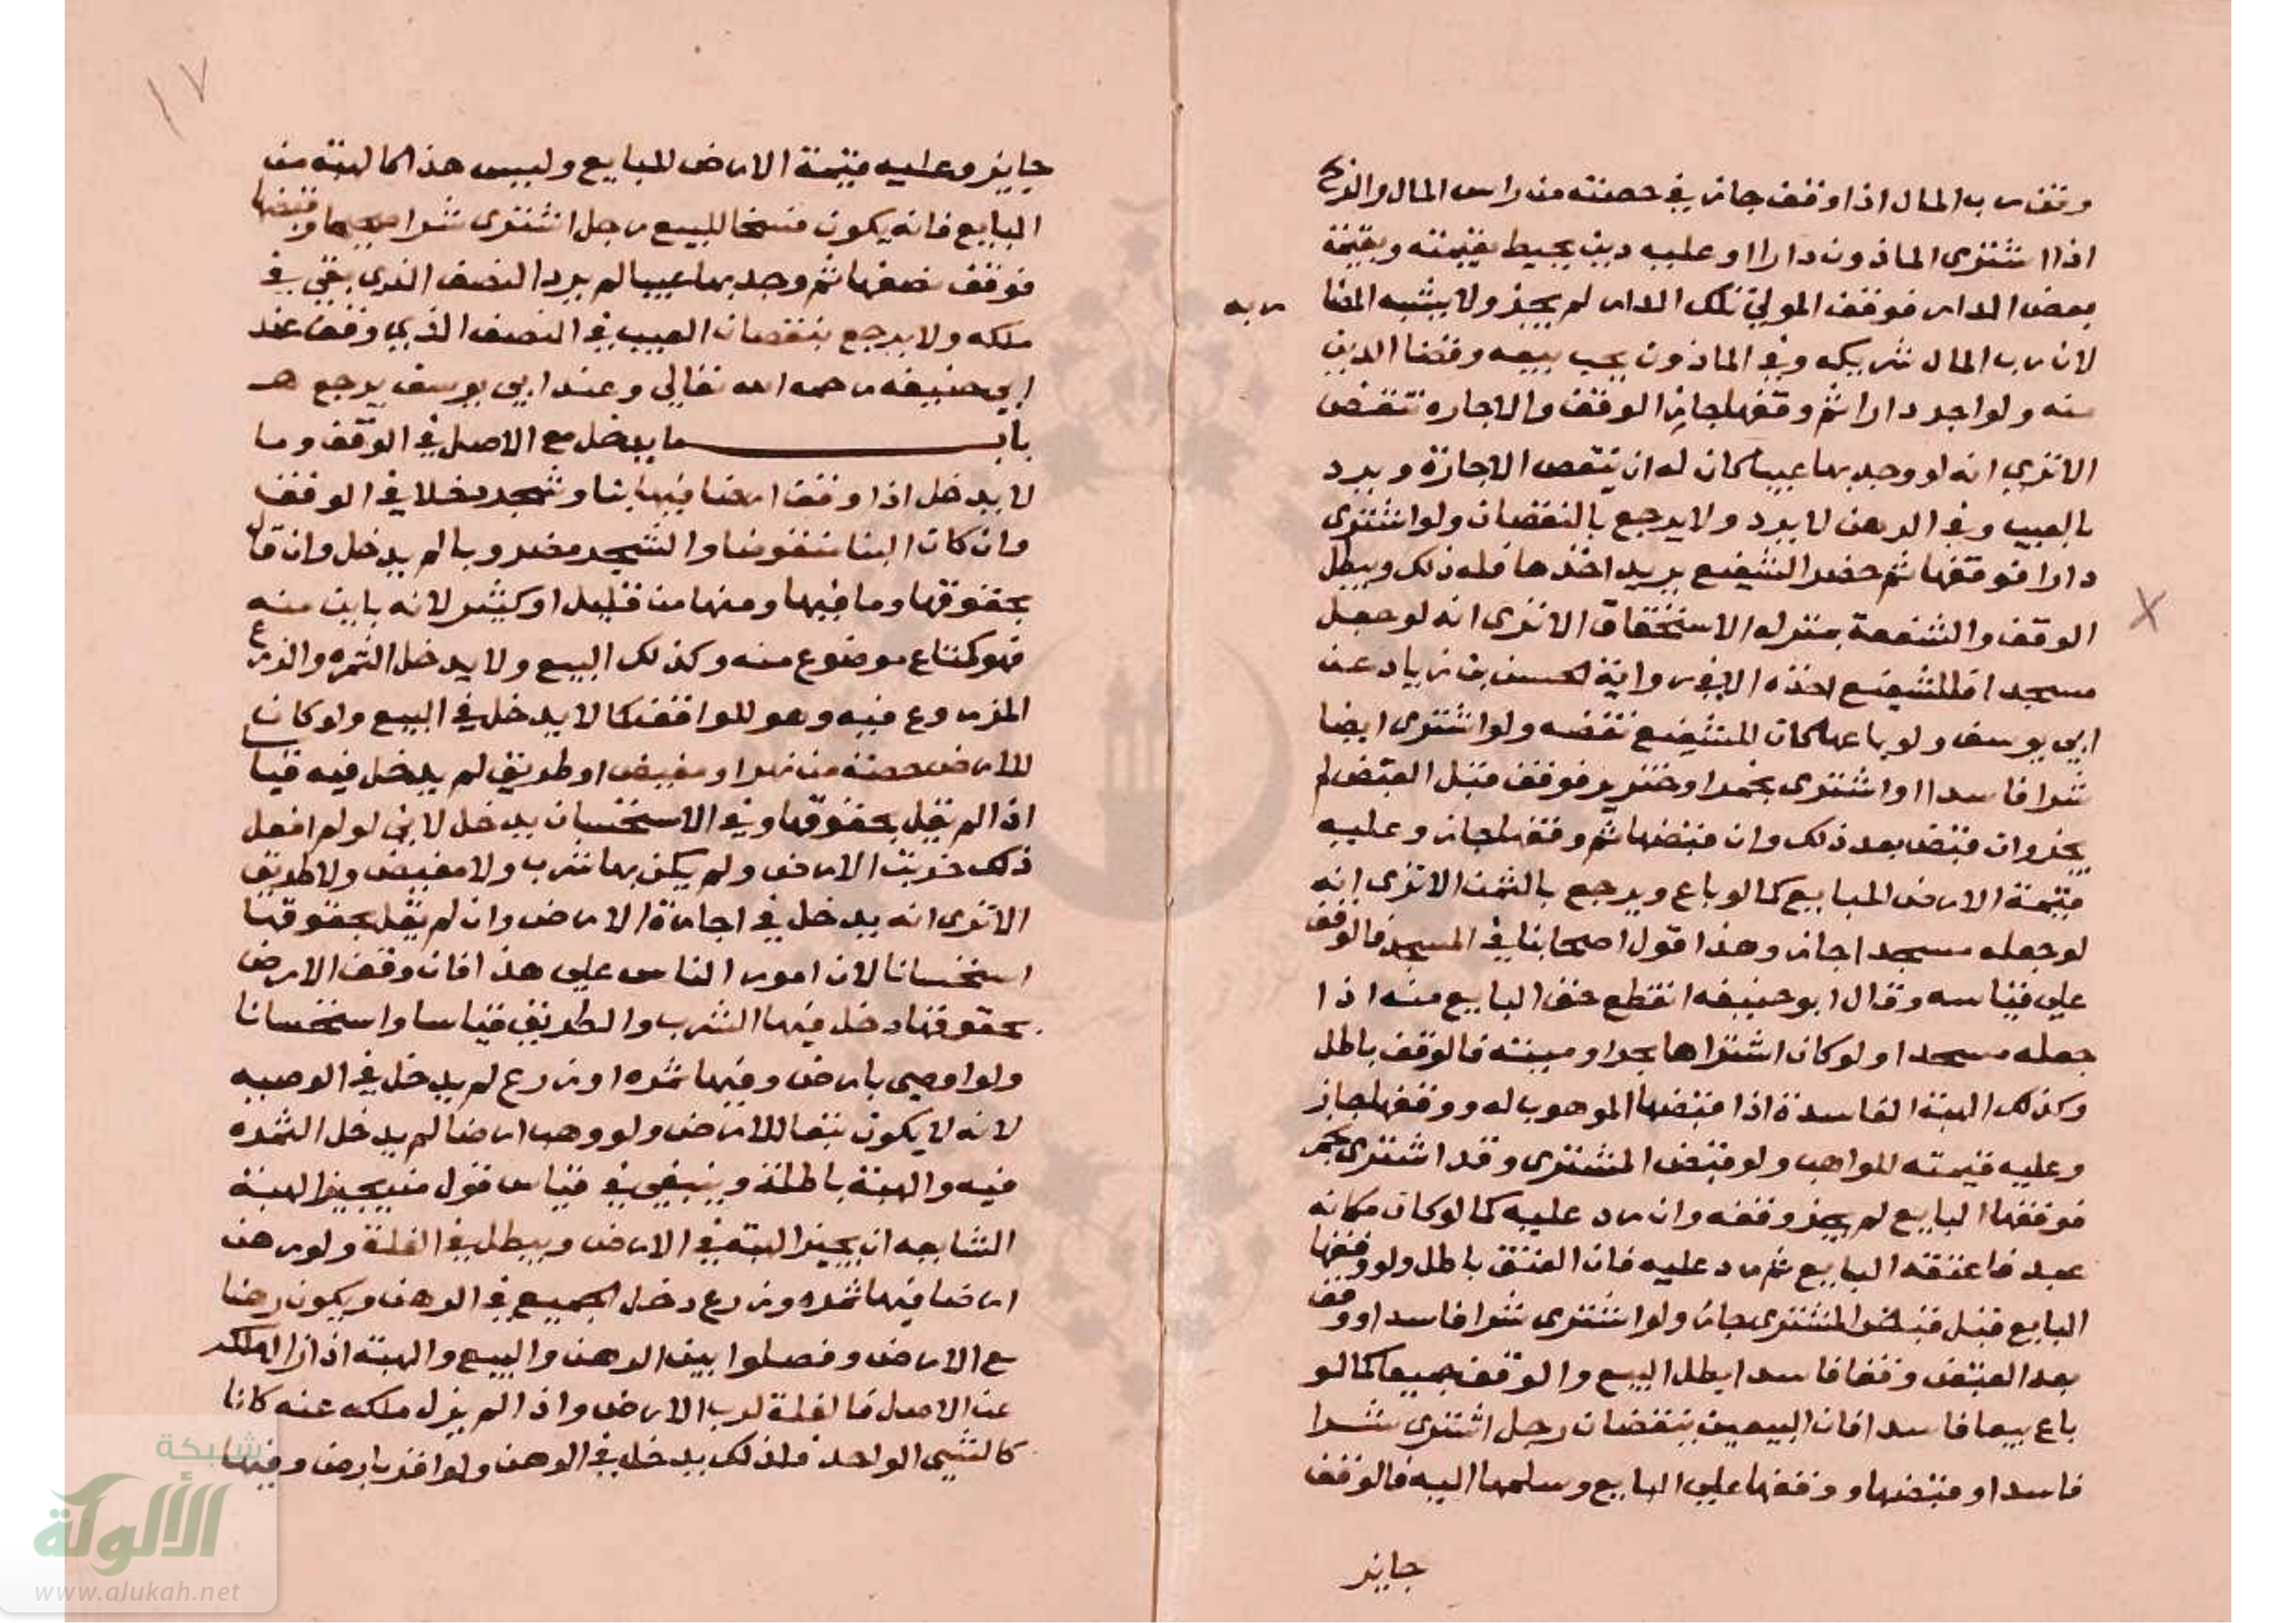 وقف رب المال اذا وقف جاز في حصته من راس المال والربح
اذا اشترى الماذون دارا وعليه دين يحيط بقيمته وبقيمة
بعض الدار فوقف المولي تلك الدار لم يجز ولا يشبه المضا
ربه
لان رب المال شريكه وفي الماذون يجب بيعه وقضا الدين
منه ولو اجر دارا ثم وقفها جاز الوقف والاجاره تنتقض
الا تري انه لو وجد بها عيبا كان له ان ينقص الاجازة ويرد
بالعيب وفي الرهن لا يرد ولا يرجع بالنقصان ولو اشترى
دارا فوقفها ثم حضر الشفيع يريد اخذها فله ذلك ويبطل
الوقف والشفعة بمنزله الاستحقاق الا ترى انه لو جعل
مسجدا فللشفيع اخذه الا في رواية الحسن بن زياد عن
ابي يوسف ولو باعها كان للشفيع نقضه ولو اشترى ايضا
شرا فاسدا او اشترى بخمر او خنزير فوقف قبل القبض لم
يجز وان قبض بعد ذلك وان قبضها ثم وقفها جاز وعليه
قيمة الارض للبايع كما لو باع ويرجع بالثمن الا ترى انه
لو جعله مسجدا جاز وهذا قول اصحابنا في المسجد فالوقف
علي قياسه وقال ابو حنيفه انقطع حق البايع منه اذا
جعله مسجدا ولو كان اشتراها بحر او ميتة فالوقف باطل
وكذلك الهبة الفاسدة اذا قبضها الموهوب له ووقفها جاز
وعليه قيمته للواهب ولو قبض المشترى وقد اشترى بخمر
فوقفها البايع لم يجز وقفه وان رد عليه كما لو كان مكانه
عبد فاعتقه البايع ثم رد عليه فان العتق باطل ولو وقفها
البايع قبل قبض المشترى جاز ولو اشترى شرا فاسدا ووقف
بعد القبض وقفا فاسدا يطل البيع والوقف جميعا كما لو
باع بيعا فاسدا فان البيعين ينتقضان رجل اشترى شرا
فاسدا وقبضها ووقفها علي البايع وسلمها اليه فالوقف
جايز
١٧
جايز وعليه قيمة الارض للبايع وليس هذا كالهبة من
البايع فانه يكون فسخا للبيع رجل اشترى شرا صحيحا وقبضها
فوقف نصفها ثم وجد بها عيبا لم يرد النصف الذي بقي في
ملكه ولا يرجع بنقصان العيب في النصف الذي وقف عند
ابي حنيفه رحمه الله تعالي وعند ابي يوسف يرجع
باب ما يدخل مع الاصل في الوقف وما
لا يدخل اذا وقف ارضا فيها بنا وشجر دخلا في الوقف
وان كان البنا منقوضا والشجر مضروبا لم يدخل وان قال
بحقوقها وما فيها ومنها من قليل او كثير لانه باين منه
فهو كمتاع موضوع منه وكذلك البيع ولا يدخل الثمره والزرع
المزروع فيه وهو للواقف كما لا يدخل في البيع ولو كان
للارض حصة من نهر او مغيض او طريق لم يدخل فيه قيا
اذا لم يقل بحقوقها وفي الاستحسان يدخل لاني لو لم افعل
ذلك خربت الارض ولم يكن بها شرب ولا مغيض ولا طريق
الا ترى انه يدخل في اجارة الارض وان لم يقل بحقوقها
استحسانا لان امور الناس علي هذا فان وقف الارض
بحقوقها دخل فيها الشرب والطريق قياسا واستحسانا
ولو اوصى بارض وفيها ثمره او زرع لم يدخل في الوصيه
لانه لا يكون تبعا للارض ولو وهب ارضا لم يدخل الثمره
فيه والهبة باطلة وينبغي في قياس قول من يجيز الهبة
الشايعه ان يجيز الهبة في الارض ويبطل في الغلة ولو رهن
ارضا فيها ثمره وزرع دخل الجميع في الرهن ويكون رضا
مع الارض وفصلوا بين الرهن والبيع والهبة اذا زال الملك
عن الاصل فالغلة لرب الارض واذا لم يزل ملكه عنه كانا
كالشي الواحد فلذلك يدخل في الرهن ولو اقر بارض وفيها
شبكة
الألوكة
www.alukah.net